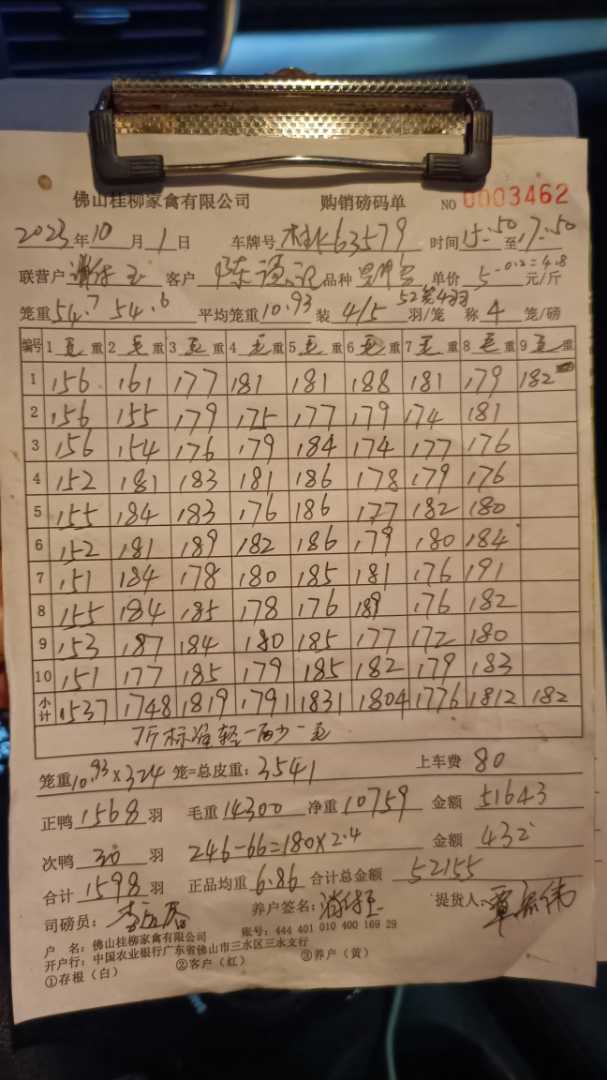 佛山桂柳家禽有限公司 购销磅码单 NO 0003462
2023年10月1日 车牌号 桂K63579 时间15:50至17:50
联营户 客户 陈 品种 单价 5-0.2=4.8 元/斤
52笼4羽
笼重54.7 54.6 平均笼重10.93 装 4/5 羽/笼 称 4 笼/磅
编号 1毛重 2毛重 3毛重 4毛重 5毛重 6毛重 7毛重 8毛重 9毛重
1 156 161 177 181 181 188 181 179 182
2 156 155 179 175 177 179 174 181
3 156 154 176 179 184 174 177 176
4 152 181 183 181 186 178 179 176
5 155 184 183 176 186 177 182 180
6 152 181 189 182 186 179 180 184
7 151 184 178 180 185 181 176 191
8 155 184 185 178 176 189 176 182
9 153 187 184 180 185 177 172 180
10 151 177 185 179 185 182 179 183
小计 1537 1748 1819 1791 1831 1804 1776 1812 182
7斤标准轻一两少一毛
笼重10.93×324 笼=总皮重:3541 上车费 80
正鸭 1568 羽 毛重 14300 净重 10759 金额 51643
次鸭 30 羽 246-66=180×2.4 金额 432
合计 1598 羽 正品均重 6.86 合计总金额 52155
司磅员: 养户签名: 提货人:
户 名:佛山桂柳家禽有限公司 账号:444 401 010 400 169 29
开户行:中国农业银行广东省佛山市三水区三水支行
①存根(白) ②客户(红) ③养户(黄)